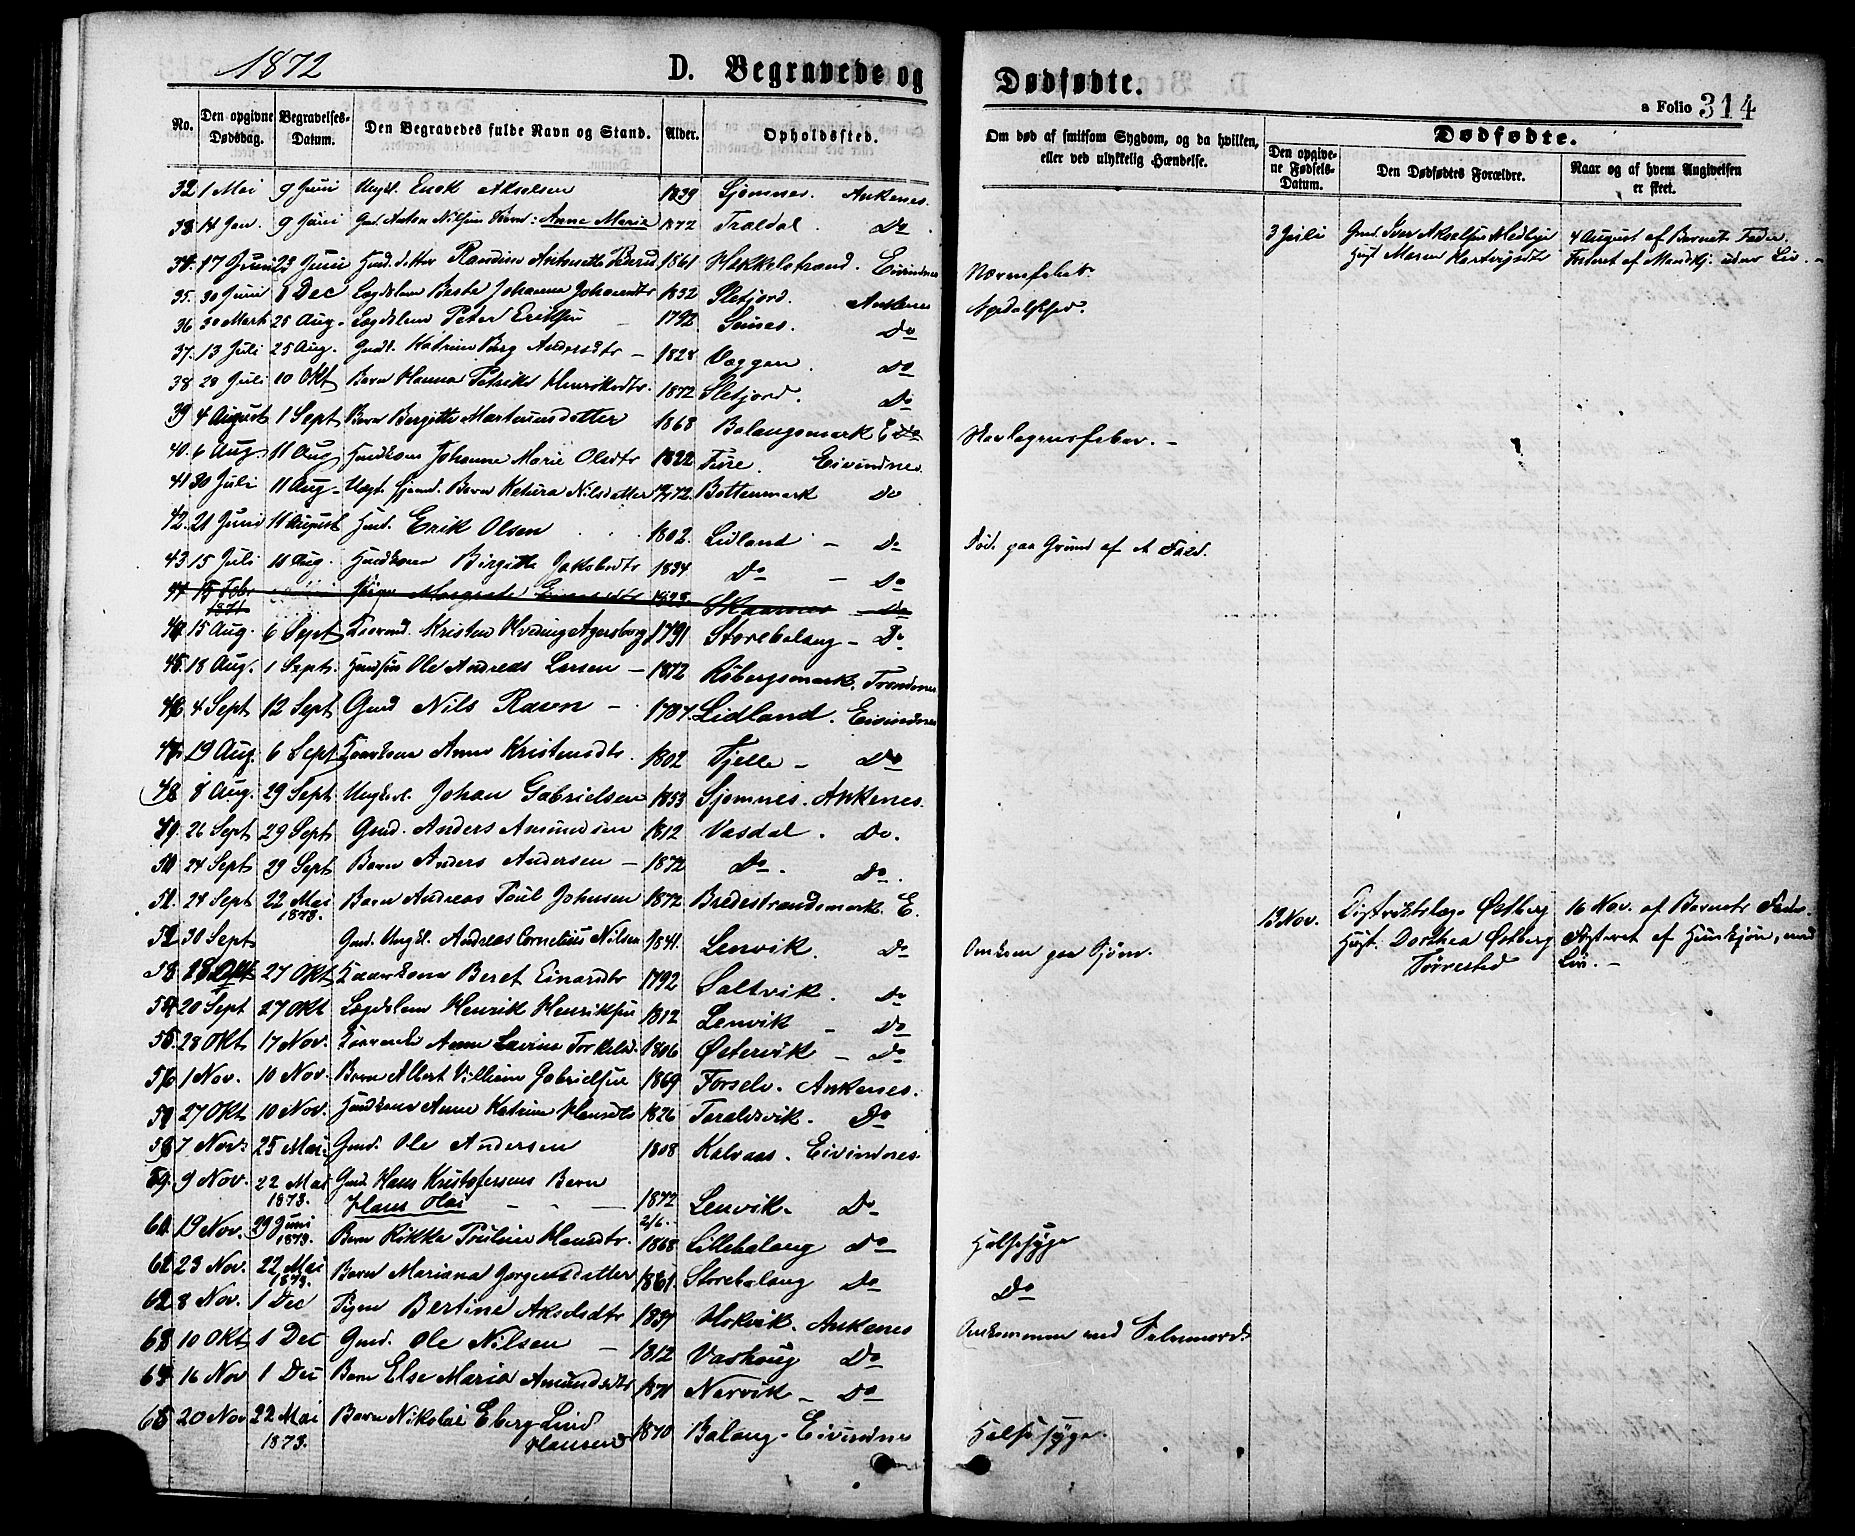 1872
D. Begravede og Dødfødte.
a Folio 314
No. Den opgivne Dødsdag. Begravelses-Datum. Den Begravedes fulde Navn og Stand. Alder. Opholdssted.
Om død af smitsom Sygdom, og da hvilken, eller ved ulykkelig Hændelse.
Dødfødte.
Den opgivne Fødsels-Datum. Den Dødfødtes Forældre. Naar og af hvem Angivelsen er skeet.
32. 1 Mai 9 Juni Ungk. Enok Akselsen 1839 Sjomnes. Ankenes.
33. 14 Jan. 9 Juni Gmd. Anton Nilsens Anne Maria 1872 Traldal. Do
3 Juli Gmd. Iver Akselsen Medbye 4 August af Barnets Fader.
Hust. Maren Hartvigsdtr Fosteret af Mandkj. uden Liv. -
34. 17 Juni 23 Juni Husm. datter Randine 1861 Hekkelstrand. Eivindnes Nervefeber
35. 30 Juni 8 Dec Lægdslem Berte Johanna Johansdtr 1832 Sletjord. Ankenes Spedalskhed.
36. 30 Marts 25 Aug. Lægdslem Peter Eriksen 1792 Do
37. 13 Juli 25 Aug. Katrine Berg Andersdtr - 1828 Væggen. Do
38. 20 Juli 10 Okt Barn Hanna Petrike Henriksdtr. 1872 Sletjord. Do
39 4 August 1 Sept Barn Bergitte Martinusdatter 1868 Balangsmark E
40. 6 Aug. 11 Aug Husmkone Johanne Marie Olsdtr 1822 Eivindnes.
41 30 Juli 11 Aug - Barn Ketura Nilsdatter Bottenmark Do
42. 21 Juni 11 August Husm. Erik Olsen 1802. Lidland - Do Død paa Grund af et Fald.
43 15 Juli 11 Aug. Husmkone Birgitte Jakobsdtr 1834 Do - Do
44 15 Feb. 1871 Skaarnes Do
44. 15 Aug. 6 Sept Kaarmd. Kristen Hveding Agersborg 1791 Storebalang - Do
45. 18 Aug. 1 Sept. Ole Andreas Larsen - 1872 Røbergsmark. Trondenes
46 4 Sept 12 Sept Gmd Nils Ravn - 1787. Lidland. Eivindnes
47. 19 Aug. 6 Sept Kaarkone Anne Kristensdtr 1802 Fjelle - Do
48 8 Aug. 29 Sept Ungkarl. Johan Gabrielsen 1853 Sjomnes. Ankenes.
49 26 Sept 29 Sept Gmd. Anders Amundsen 1812 Vasdal. Do.
50 24 Sept 29 Sept Barn Anders Andersen - 1872 Do. Do.
51. 24 Sept 22 Mai 1873. Barn Andreas Poul Johnsen 1872 Bredestrandsmark E.
13 Nov. Distriktslæge Østberg 16 Nov. af Barnets Fader.
Hust. Dorthea Østberg Fosteret af Hunkjøn, med
Tørrestad Liv. -
52 30 Sept Gmd. Ungk. Andreas Cornelius Nilsen 1841. Lenvik. Do Omkom paa Sjøen.
53. 28 Okt 27 Okt Kaarkone Beret Einarsdtr 1792 Saltvik. Do
54 20 Sept 27 Okt Lægdslem Henrik Henriksen 1812 Lenvik - Do
55 28 Okt 17 Nov. Anne Lovise Torkelsd. 1806 Østervik - Do
56 1 Nov. 10 Nov. Barn Albert Villiam Gabrielsen 1869 Forselv. Ankenes.
57 27 Okt 10 Nov. Husmkone Anne Katrine Hansdtr 1826 Taraldsvik. Do
58 7 Nov. 25 Mai Gmd. Ole Andersen 1808 Kalvaas. Eivindnes.
59. 9 Nov. 22 Mai 1873. Gmd. Hans Kristofersens Barn
Hans Olai - 1872 2/6 Lenvik. Do
60 19 Nov. 29 Juni 1873. Barn Rikka Pauline Hansdtr. 1868 Lillebalang Do Halssyge
61 23 Nov. 22 Mai 1873. Barn Mariana Jørgensdatter 1861. Storebalang Do Do
62 8 Nov. 1 Dec Pige Bertine Akselsdtr 1839 Hokvik. Ankenes
63 10 Okt 1 Dec Gmd. Ole Nilsen - 1812 Vashoug Do Omkommen ved Selvmord.
64 16 Nov 1 Dec Barn Else Maria Amundsdtr 1871 Narvik - Do
65 20 Nov 22 Mai 1873. Barn Nikolai Eberg Lind Hansen 1870 Balang - Eivindnes Halssyge.